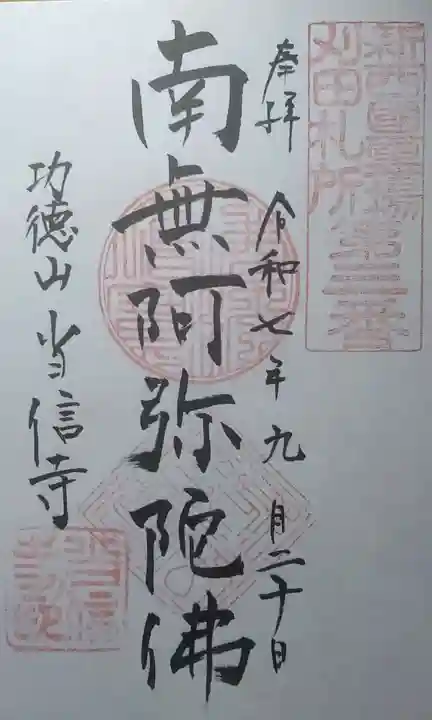 新西國霊場第三番
刈田札所
奉拝 令和七年九月二十日
南無阿弥陀佛
功徳山 当信寺